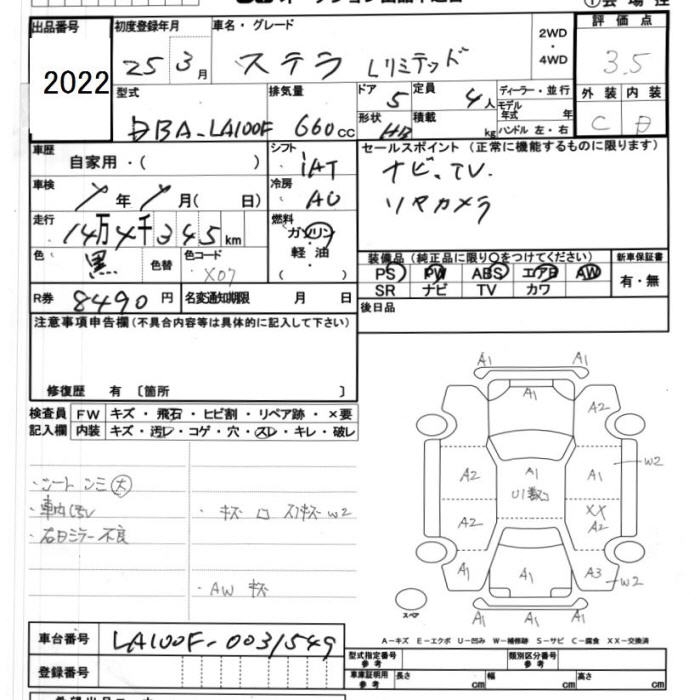 出品番号
2022
初度登録年月
25 3月
車名・グレード
ステラ Lリミテッド
2WD
・
4WD
評価点
3.5
型式
DBA-LA100F
排気量
660cc
ドア
5
定員
4人
ディーラー・並行
モデル年式 年
ハンドル 左・右
形状
HB
積載
kg
外装 内装
C D
車歴
自家用・( )
シフト
IAT
セールスポイント (正常に機能するものに限ります)
ナビ、TV.
リヤカメラ
車検
年 月( 日)
冷房
走行
14万4千345km
燃料
ガソリン
軽油
( )
色
黒
色替
色コード
X07
装備品 (純正品に限り○をつけてください)
PS PW ABS エアB AW
SR ナビ TV カワ
新車保証書
有・無
R券
8490円
名変通知期限 月 日
後日品
注意事項申告欄(不具合内容等は具体的に記入して下さい)
修復歴 有 〔箇所 〕
検査員
記入欄
FW キズ・飛石・ヒビ割・リペア跡・×要
内装 キズ・汚レ・コゲ・穴・スレ・キレ・破レ
・シート シミ 大
・右ドミラー不良
・AW キズ
A1 A1
A1
A2
A2 A1 A1 W2
U1数コ
A2 XX A2
A1 A1 A3 W2
A1 A1
スペア
A-キズ E-エクボ U-凹み W-補修跡 S-サビ C-腐食 XX-交換済
車台番号
LA100F-0031549
登録番号
型式指定番号
参考
類別区分番号
参考
車庫証明用
参考
長さ cm 幅 cm 高さ cm